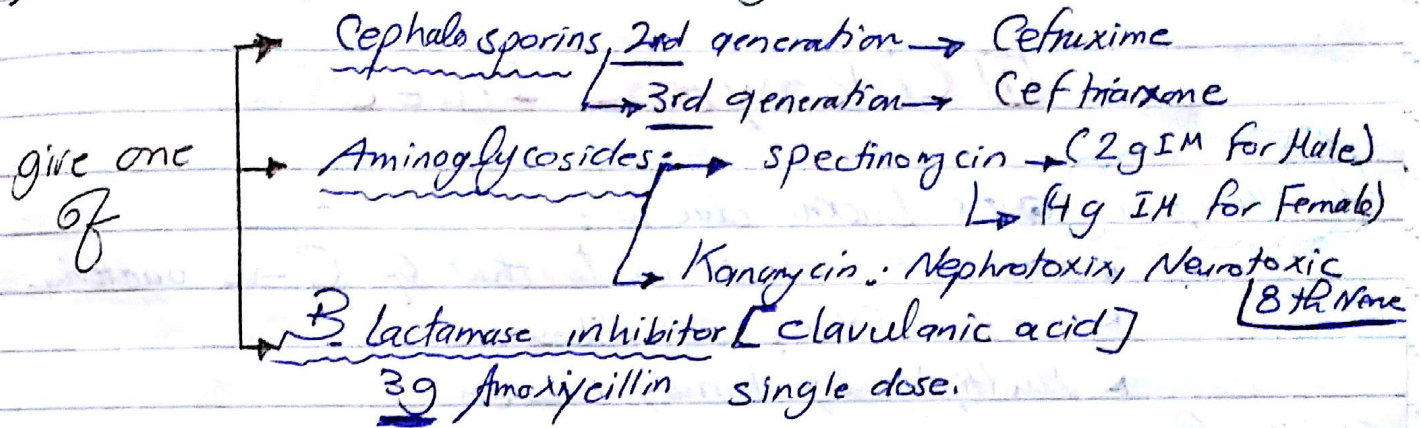 Cephalosporins, 2nd generation → Cefruxime
→ 3rd generation → Ceftriaxone
give one of
Aminoglycosides: → spectinomycin → (2g IM for Male)
→ (4g IM for Female)
→ Kanamycin: Nephrotoxix, Neurotoxic
8th Nerve
B lactamase inhibitor [clavulanic acid]
3g Amoxiycillin single dose.